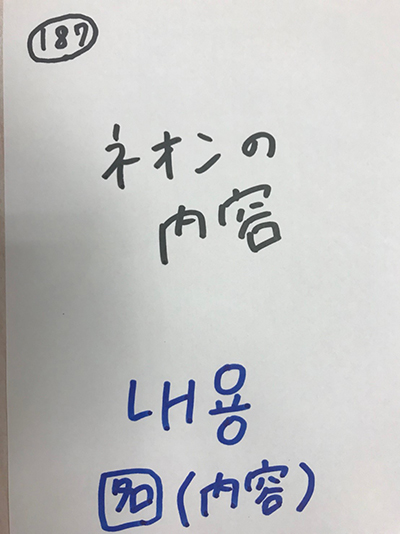 187
ネオンの
内容
내용
名(内容)